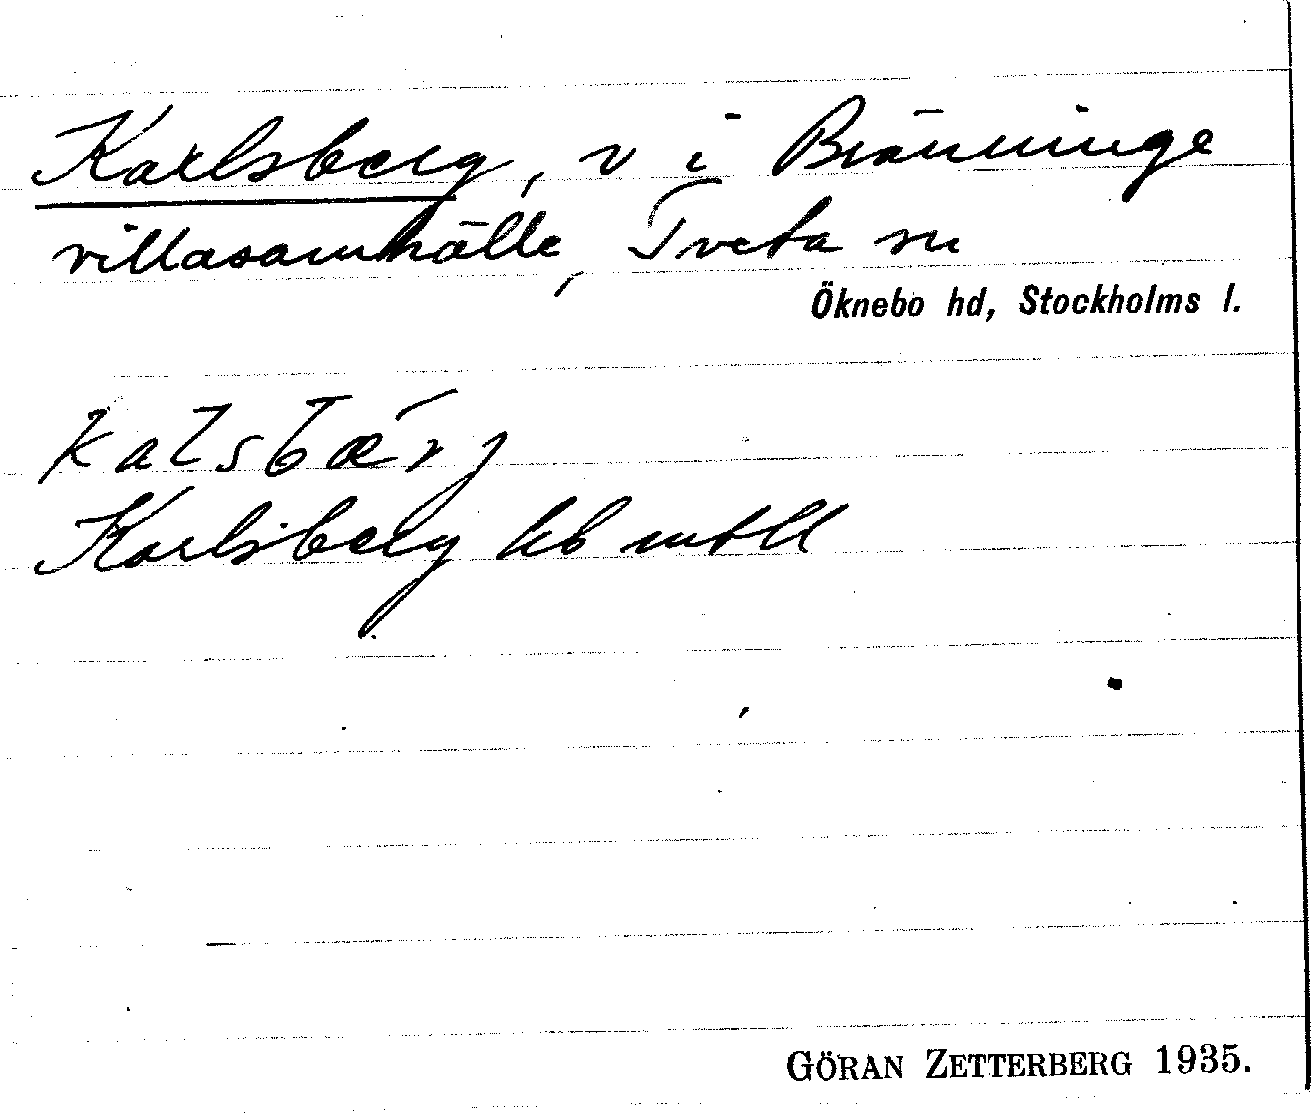 Karlsberg, v i Bränninge
villasamhälle, Tveta sn
Öknebo hd, Stockholms l.
kalsbærj
Karlsberg
GÖRAN ZETTERBERG 1935.